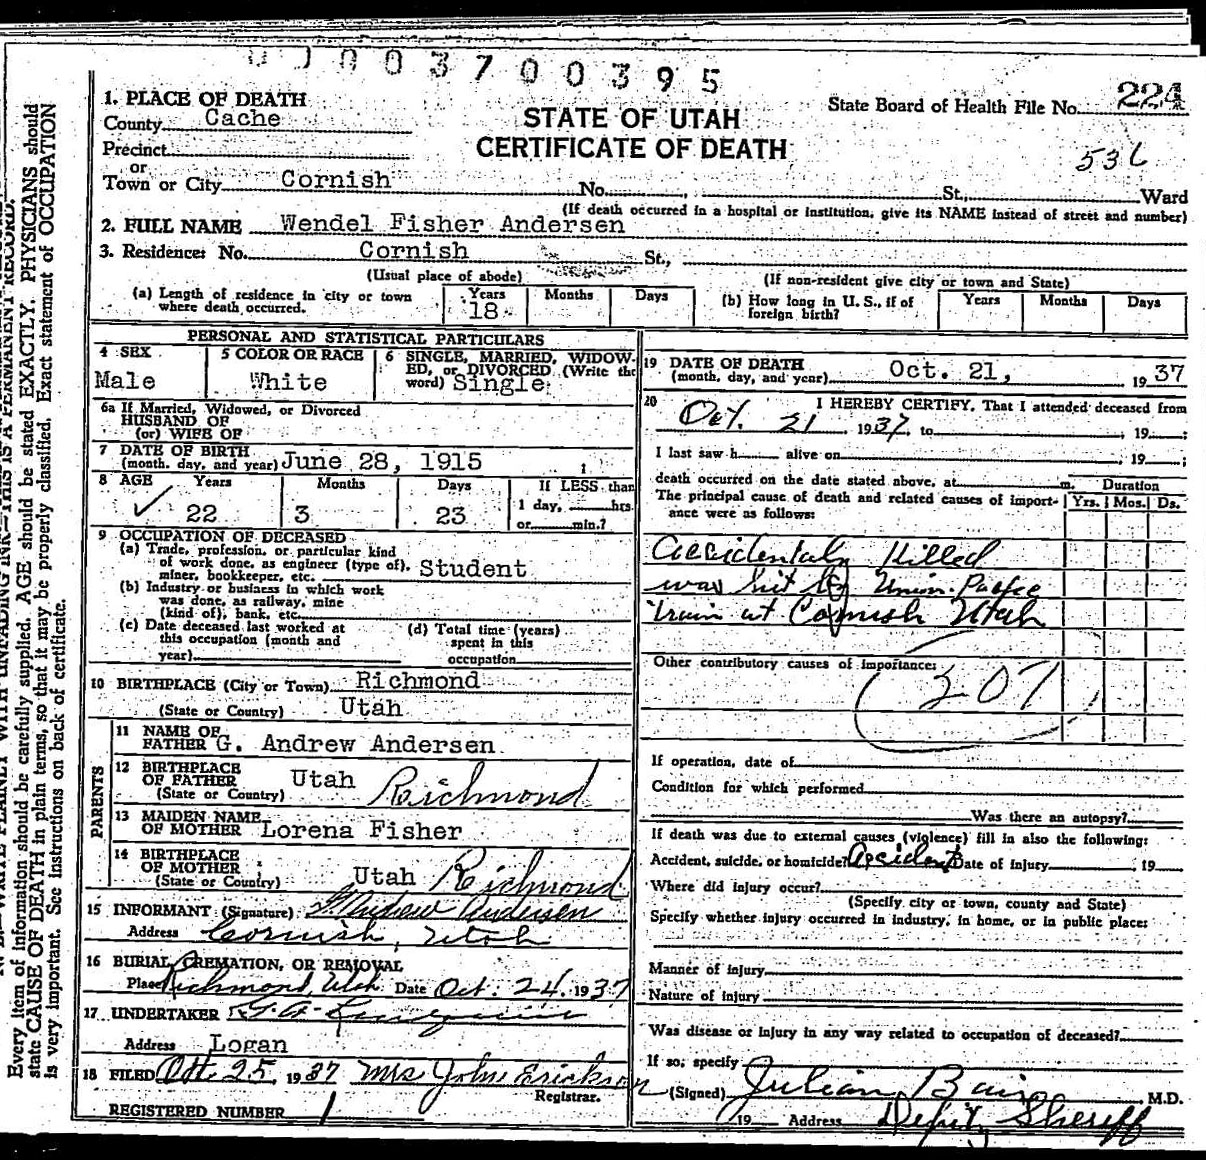 0 0 0 0 3 7 0 0 3 9 5
1. PLACE OF DEATH
County Cache
Precinct
or
Town or City Cornish No. , St., Ward
STATE OF UTAH
CERTIFICATE OF DEATH
State Board of Health File No. 224
(If death occurred in a hospital or institution, give its NAME instead of street and number)
2. FULL NAME Wendel Fisher Andersen
3. Residence: No. Cornish St.,
(Usual place of abode) (If non-resident give city or town and State)
(a) Length of residence in city or town where death occurred. Years 18 Months Days
(b) How long in U. S., if of foreign birth? Years Months Days
PERSONAL AND STATISTICAL PARTICULARS
4 SEX Male
5 COLOR OR RACE White
6 SINGLE, MARRIED, WIDOWED, or DIVORCED (Write the word) Single
6a If Married, Widowed, or Divorced
HUSBAND OF
(or) WIFE OF
7 DATE OF BIRTH
(month, day, and year) June 28, 1915
8 AGE Years 22 Months 3 Days 23
If LESS than
1 day, hrs.
or min.?
9 OCCUPATION OF DECEASED
(a) Trade, profession, or particular kind
of work done, as engineer (type of),
miner, bookkeeper, etc. Student
(b) Industry or business in which work
was done, as railway, mine
(kind of), bank, etc.
(c) Date deceased last worked at
this occupation (month and
year)
(d) Total time (years)
spent in this
occupation
10 BIRTHPLACE (City or Town) Richmond
(State or Country) Utah
PARENTS
11 NAME OF
FATHER G. Andrew Andersen
12 BIRTHPLACE
OF FATHER Utah Richmond
(State or Country)
13 MAIDEN NAME
OF MOTHER Lorena Fisher
14 BIRTHPLACE
OF MOTHER Utah Richmond
(State or Country)
15 INFORMANT (Signature) G. Andrew Andersen
Address Cornish, Utah
16 BURIAL, CREMATION, OR REMOVAL
Place Richmond, Utah Date Oct. 24, 1937
17 UNDERTAKER
Address Logan
18 FILED Oct 25, 1937 Mrs John Erickson
Registrar.
REGISTERED NUMBER 1
19 DATE OF DEATH
(month, day, and year) Oct. 21, 1937
20 I HEREBY CERTIFY, That I attended deceased from
Oct. 21, 1937, to , 19 ;
I last saw h alive on , 19 ;
death occurred on the date stated above, at m. Duration
The principal cause of death and related causes of importance were as follows: Yrs. Mos. Ds.
Accidentaly Killed
was hit by Union Pacfic
train at Cornish Utah
Other contributory causes of importance:
207
If operation, date of
Condition for which performed
Was there an autopsy?
If death was due to external causes (violence) fill in also the following:
Accident, suicide, or homicide? Accident Date of injury , 19
Where did injury occur?
(Specify city or town, county and State)
Specify whether injury occurred in industry, in home, or in public place:
Manner of injury
Nature of injury
Was disease or injury in any way related to occupation of deceased?
If so, specify
(Signed) Julian Bair M.D.
19 Address Depity Sheriff
Every item of information should be carefully supplied. AGE should be stated EXACTLY. PHYSICIANS should
state CAUSE OF DEATH in plain terms, so that it may be properly classified. Exact statement of OCCUPATION
is very important. See instructions on back of certificate.